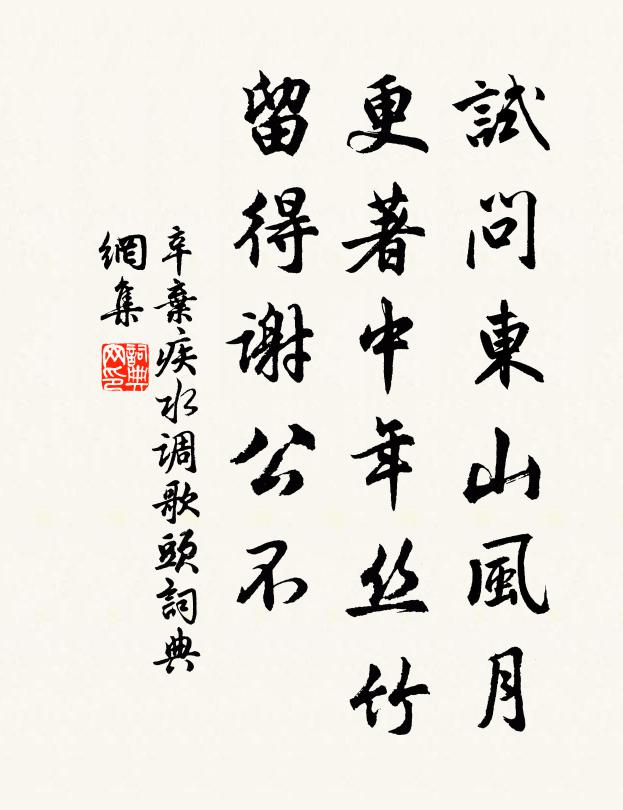 試問東山風月
更著中年丝竹
留得謝公不
辛棄疾水调歌頭詞典
網集
詞典
网印